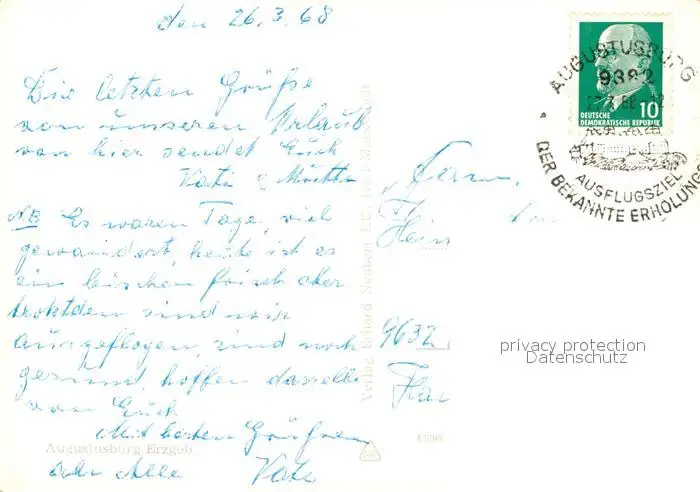 den 26.3.68
Die letzten Grüße
von unseren Urlaub
von hier sendet Euch
Vati u Mutti
NB Es waren Tage, viel
gewandert, heute ist es
ein bischen frisch aber
trotzden sind wir
ausgeflogen, sind noch
gesund, hoffen dasselbe
von Euch
Mit besten Grüßen
an Alle Vati
Augustusburg Erzgeb.
Verlag Erhard Neubert
Fam.
9632
AUGUSTUSBURG
9382
DEUTSCHE
DEMOKRATISCHE REPUBLIK
10
AUSFLUGSZIEL
DER BEKANNTE ERHOLUNGS
privacy protection
Datenschutz